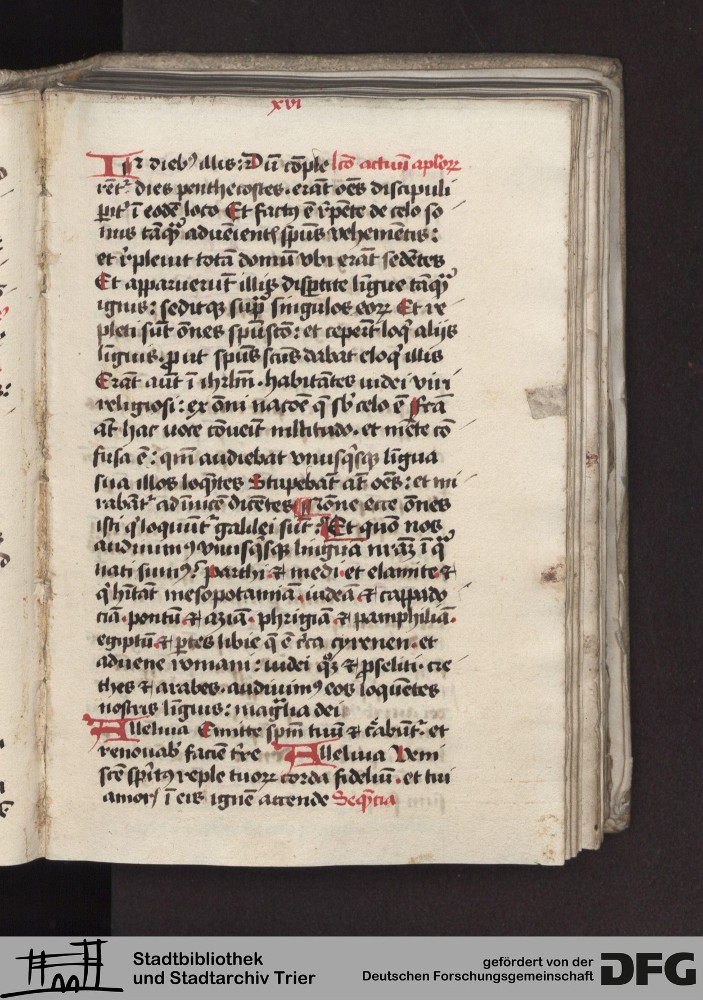 xvi
In dieb9 illis: Dū cōple lcō actuū aplōrꝝ
rēt᷑ dies penthecostes. erāt oēs discipuli
pit᷑ ī eodē loco Et fact9 ē rp̄ēte de celo so
nus tāqȝ aduēient spūs vehemētis:
et rp̄leuit totā domū vbi erāt sedētes
Et apparuerūt illis disꝑtite ligue tāqȝ
ignis: seditqȝ supͣ singulos eorꝝ Et re
pleti sūt ōnes spūsctō: et ceperūt loq̇ alijs
liguis. ꝓut spūs scūs dabat eloq̇ illis
Erāt aūt ī ihrlm. habitātes iudei viri
religiosi: ex ōni nacōe q̄ sb celo ē Fcā
aūt hac uoce cōueīt mltitudo. et mēte cō
fusa ē: qm̄ audiebat vnusqsqȝ lingua
sua illos loq̄tes Stupebāt aūt oēs: et mi
rabāt᷑ ad īuicē dicētes Nōne ecce ōnes
isti q̇ loquūt᷑ galilei sūt: Et quō nos
audiuim9 vnusqsqȝ linguā nrāȝ ī q̄
nati sum9? Parthi. ⁊ medi. et elamite. ⁊
q̇ hītāt mesopotamiā. iudeā ⁊ cappado
ciā. pontū. ⁊ aziā. phrigiā ⁊ pamphiliā.
egiptū. ⁊ ꝑtes libie q̄ ē cͥca cyrenen. et
aduene romani: iudei qȝ ⁊ ꝓseliti. cre
thes ⁊ arabes. audiuim9 eos loquētes
nostris liguis: magͣlia dei
Alleluia Emitte spm̄ tuū ⁊ cͤabūt᷑. et
renouab faciē tͤre Alleluia Veni
scē spirit9 reple tuorꝝ corda fideliū. et tui
amorꝭ ī eis ignē accende Seq̄ncia
Stadtbibliothek
und Stadtarchiv Trier
gefördert von der
Deutschen Forschungsgemeinschaft
DFG